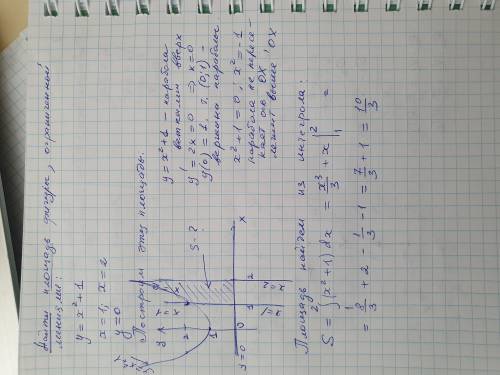 Найти площадь фигуры, ограниченной
линиями:
y = x² + 1
x = 1; x = 2
y = 0
Построим эту площадь.
y = x² + 1 – парабола
ветвями вверх
y' = 2x = 0 ⇒ x = 0
y(0) = 1, т. (0; 1) –
вершина параболы
x² + 1 = 0; x² = -1
парабола не пересе-
кает ось OX
лежит выше OX
y
S - ?
2
1
0
1
2
x
y = 0
x = 1
x = 2
Площадь найдем из интеграла:
S = ∫₁² (x² + 1) dx = x³/3 + x |₁² =
= 8/3 + 2 - 1/3 - 1 = 7/3 + 1 = 10/3